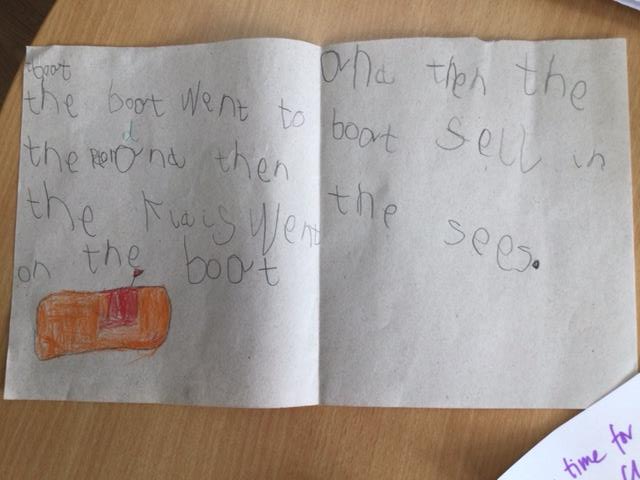 boat
the boat went to
the and then
the went
on the boat
and then the
boat sell in
the sees.
time for